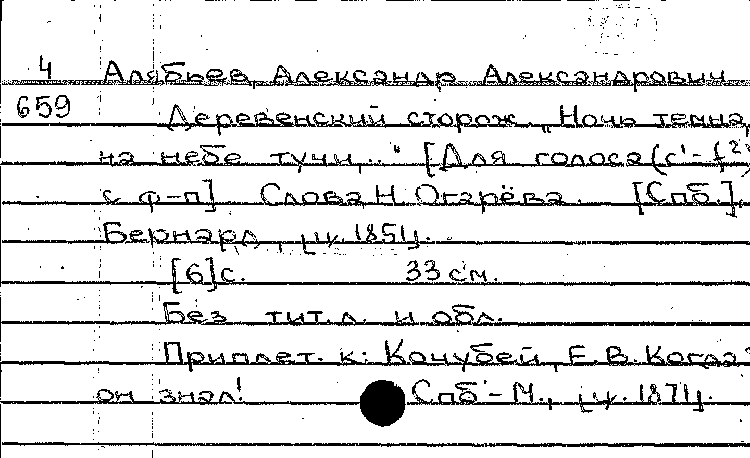 4 Алябьев, Александр Александрович
659 Деревенский сторож. „Ночь темна,
на небе тучи,.." [Для голоса (c¹-f²)
с ф-п] Слова Н. Огарёва. [Спб.],
Бернард, [ц. 1851].
[6] с. 33 см.
Без тит. л. и обл.
Приплет. к: Кочубей, Е. В. Когда б
он знал! Спб - М., [ц. 1871].